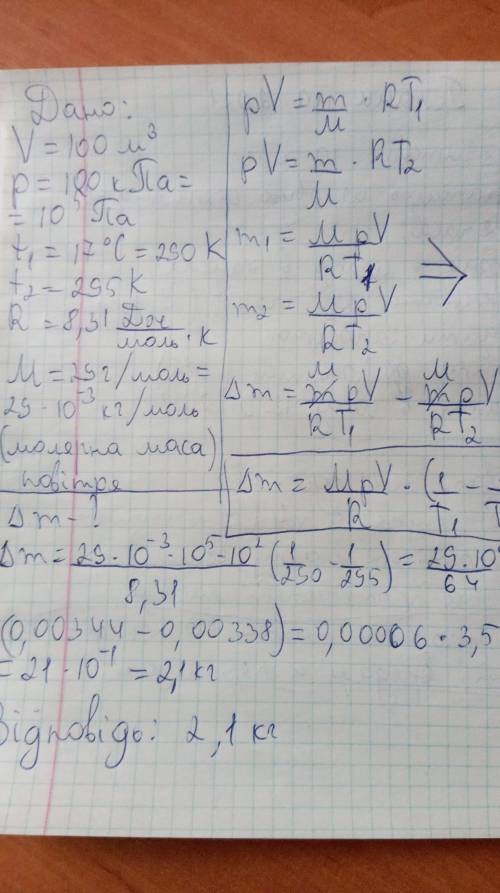 Дано:
V = 100 м³
p = 100 кПа =
= 10⁵ Па
t₁ = 17°C = 290 K
t₂ = 295 K
R = 8,31 Дж/моль·К
M = 29 г/моль =
29·10⁻³ кг/моль
(молярна маса)
повітря
Δm - ?
pV = m/M · RT₁
pV = m/M · RT₂
m₁ = MpV/RT₁
m₂ = MpV/RT₂
⇒
Δm = MpV/RT₁ - MpV/RT₂
Δm = MpV/R · (1/T₁ -
Δm = 29·10⁻³·10⁵·10²/8,31 (1/290 - 1/295) =
(0,00344 - 0,00338) = 0,00006 · 3,5
= 21·10⁻¹ = 2,1 кг
Відповідь: 2,1 кг